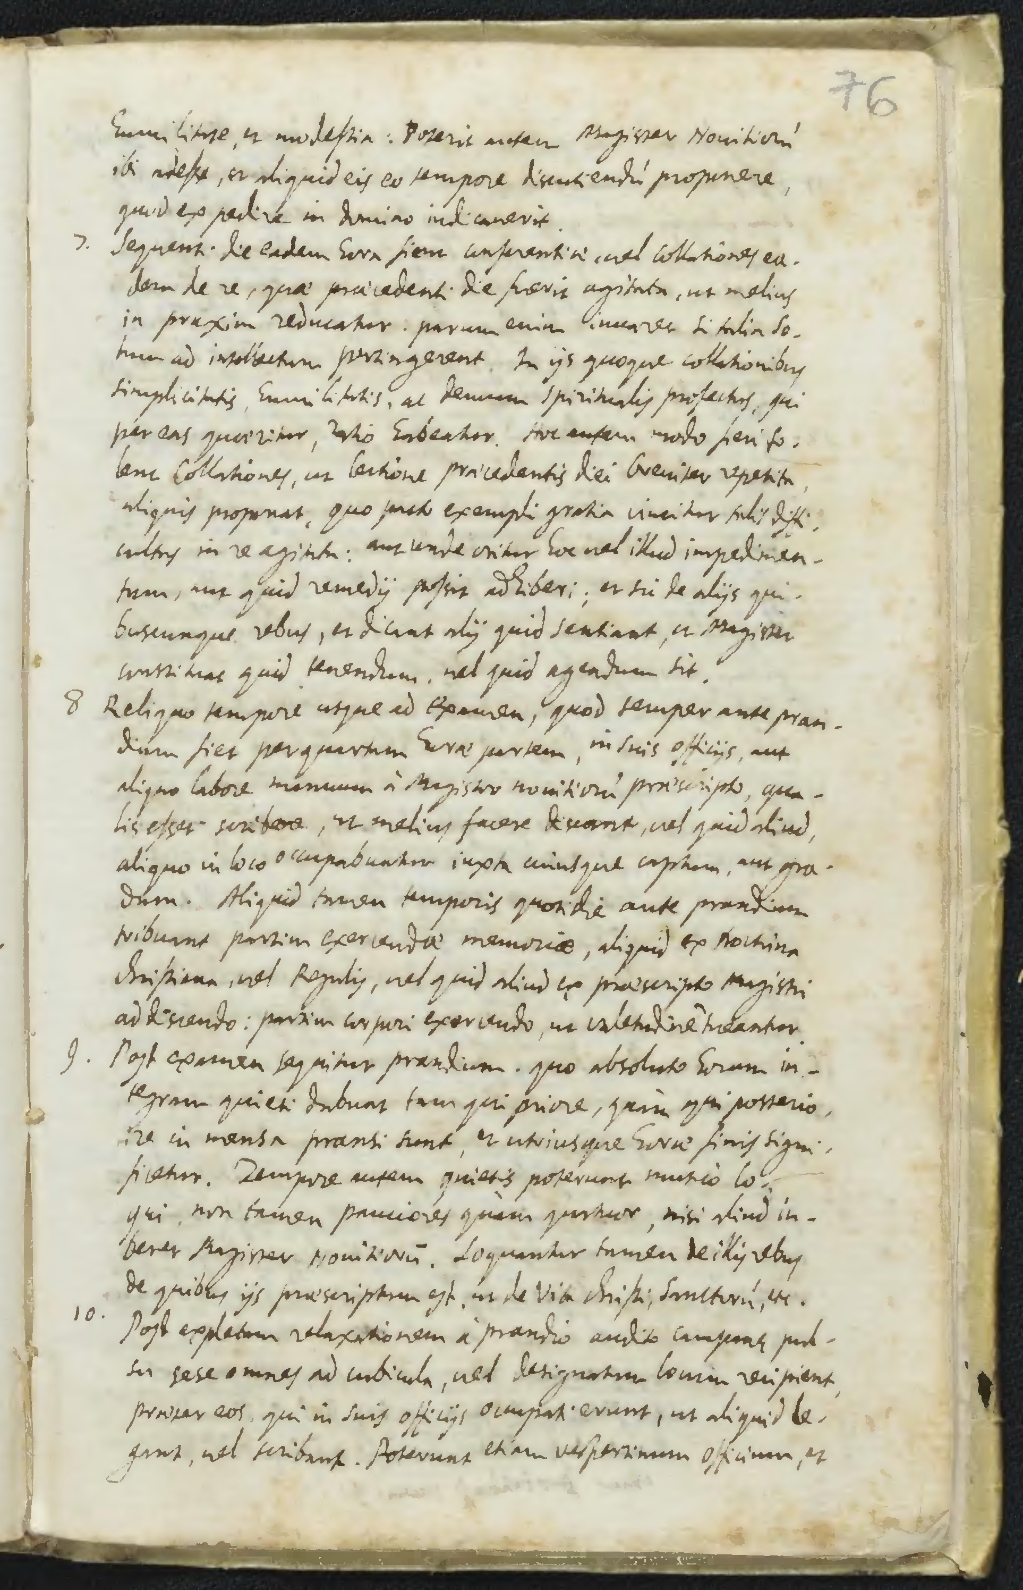 76
humilitate, et modestia: Poterit autem Magister Novitiorū
ibi adesse, et aliquid eis eo tempore discutiendū proponere,
quod expedire in domino iudicaverit.
7. Sequenti die eadem hora fient conferentiæ, vel collationes ea-
dem de re, quæ præcedenti die fuerit agitata, ut melius
in praxim reducatur. parum enim iuvaret si talia so-
lum ad intellectum pertingerent. In ijs quoque collationibus
simplicitatis, humilitatis, ac demum spiritualis profectus, qui
per eas quæritur, ratio habeatur. Hoc autem modo fieri so-
lent Collationes, ut lectione præcedentis diei breviter repetita,
aliquis proponat, quo pacto exempli gratia vincitur talis diffi-
cultas in re agitata: aut unde oritur hoc vel illud impedimen-
tum, aut quid remedij possit adhiberi; et sic de alijs qui-
buscunque rebus, et dicant alij quid sentiant, et Magister
constituat quid tenendum, vel quid agendum sit.
8 Reliquo tempore usque ad Examen, quod semper ante pran-
dium fiet per quartam horæ partem, in suis officijs, aut
aliquo labore manuum à Magistro novitiorū præscripto, qua-
lis esset scribere, ut melius facere discant, vel quid aliud,
aliquo in loco occupabuntur iuxta cuiusque captum, aut gra-
dum. Aliquid tamen temporis quotidie ante prandium
tribuant partim exercendæ memoriæ, aliquid ex Doctrina
christiana, vel Regulis, vel quid aliud ex præscripto Magistri
addiscendo: partim corpori exercendo, ut valetudinē tueantur.
9. Post examen sequitur prandium. quo absoluto horam in-
tegram quieti dabunt tam qui priore, quàm qui posterio-
re in mensa pransi sunt, et utriusque horæ finis signi-
ficetur. Tempore autem quietis poterunt mutuò lo-
qui, non tamen pauciores quàm quatuor, nisi aliud iu-
beret Magister Novitiorū. Loquantur tamen de illis rebus
de quibus ijs præscriptum est, ut de vita christi, Sanctorū, etc.
10. Post expletam relaxationem à prandio audito campanę pul-
su sese omnes ad cubicula, vel designatum locum recipient,
præter eos, qui in suis officijs occupati erunt, ut aliquid le-
gant, vel scribant. Poterunt etiam vespertinum officium, et